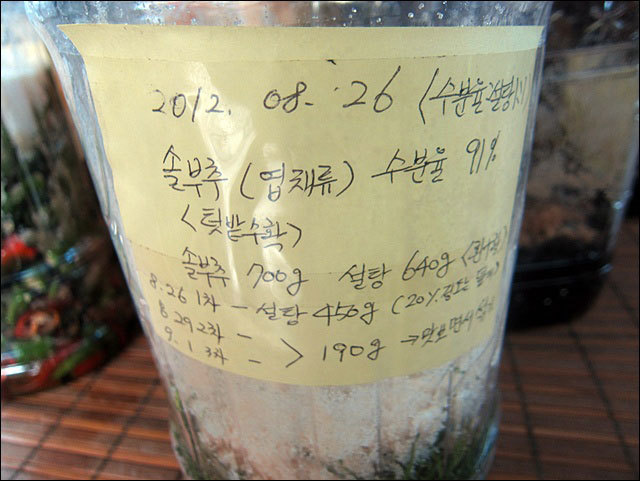 2012. 08. 26 <수분율:설탕
솔부추 (엽채류) 수분율 91%
<텃밭수확>
솔부추 700g 설탕 640g
8.26 1차 - 설탕 450g (20%
8.29 2차 -
9. 1 3차 - > 190g → 맛보면서